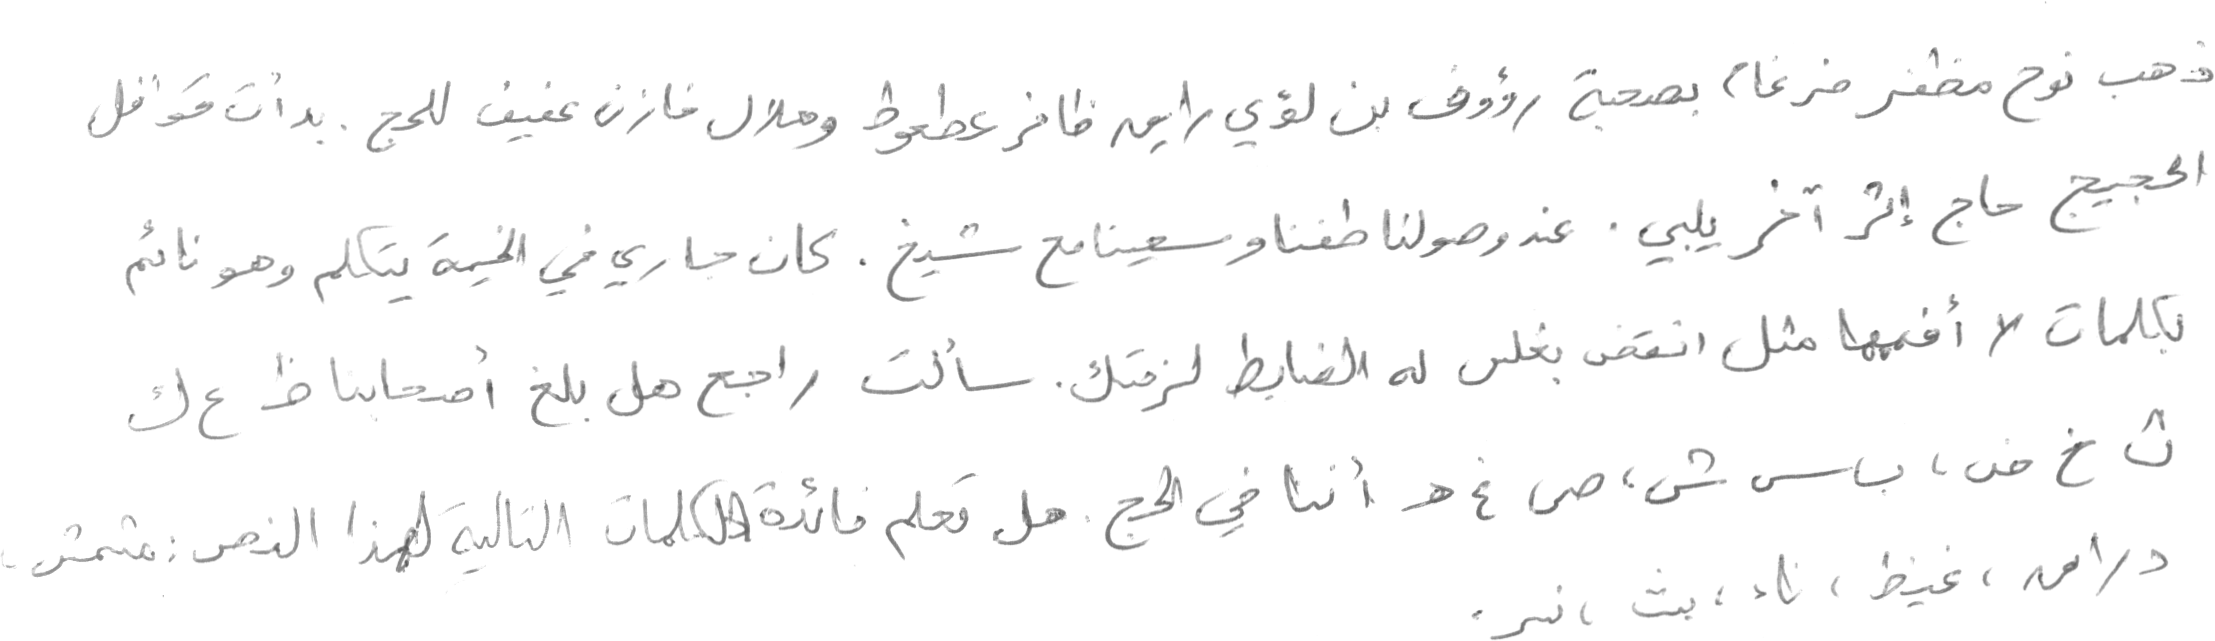 ذهب نوح مظفر ضرغام بصحبة رؤوف بن لؤي رايص ظافر عطعوط وهلال خازن عفيف للحج . بدأت قوافل
الحجيج حاج إثر آخر يلبي . عند وصولنا طفنا وسعينا مع شيخ . كان جاري في الخيمة يتكلم وهو نائم
بكلمات لا أفهمها مثل انقض بغلس له الضابط لزمتك . سألت راجح هل بلغ أصحابنا ظ ع ك
ث خ ض ، ب س ش ، ص غ ه أننا في الحج . هل تعلم فائدة الكلمات التالية لهذا النص : مشمش ،
دراق ، غيظ ، ناء ، بث ، نسر .